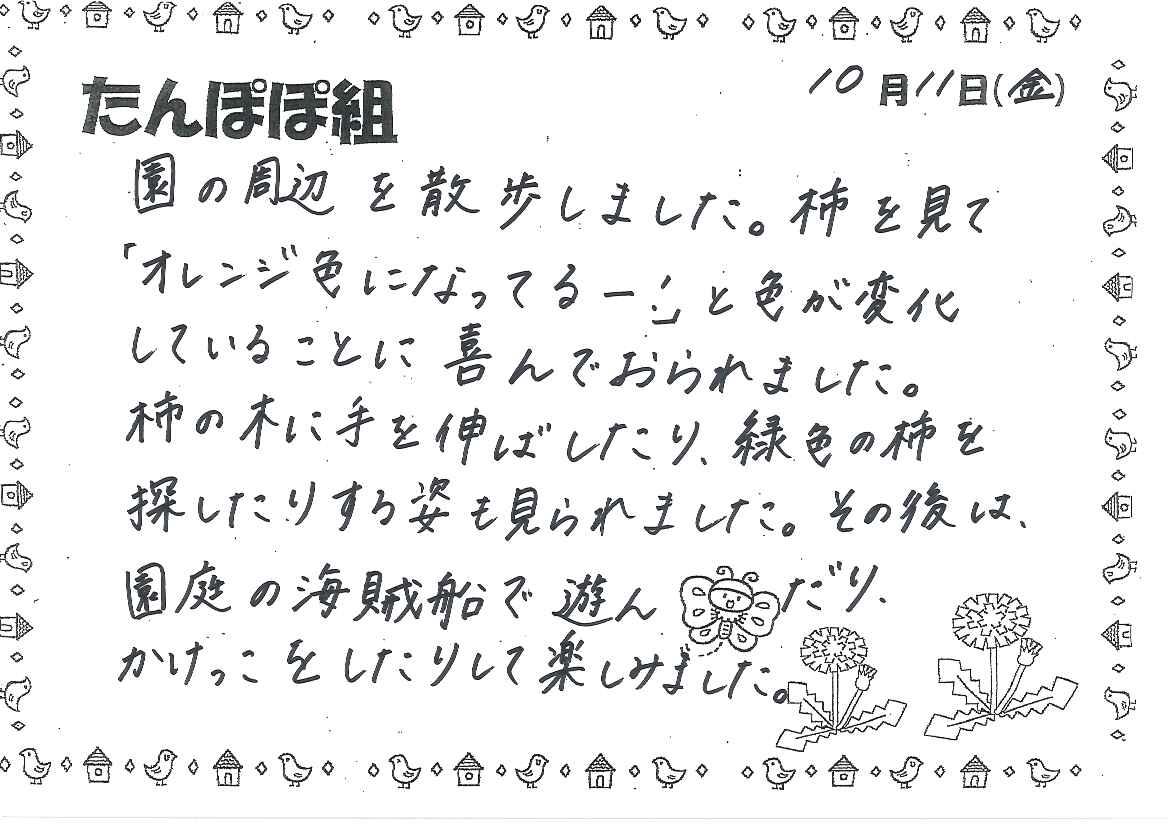 たんぽぽ組
10月11日(金)
園の周辺を散歩しました。柿を見て
「オレンジ色になってるー!」と色が変化
していることに喜んでおられました。
柿の木に手を伸ばしたり、緑色の柿を
探したりする姿も見られました。その後は、
園庭の海賊船で遊んだり、
かけっこをしたりして楽しみました。